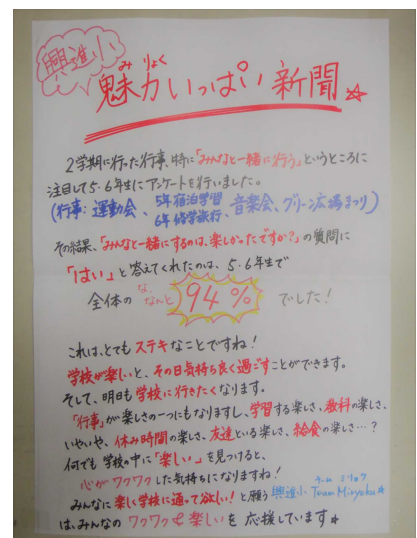 興進小
みりょく
魅力いっぱい新聞☆
2学期に行った行事、特に「みんなと一緒に行う」というところに
注目して5・6年生にアンケートを行いました。
(行事:運動会、5年宿泊学習 6年修学旅行、音楽会、グリーン広場まつり)
その結果、「みんなと一緒にするのは、楽しかったですか?」の質問に
「はい」と答えてくれたのは、5・6年生で
全体のな、なんと94%でした!
これは、とてもステキなことですね!
学校が楽しいと、その日気持ち良く過ごすことができます。
そして、明日も学校に行きたくなります。
「行事」が楽しさの一つにもなりますし、学習する楽しさ、教科の楽しさ、
いやいや、休み時間の楽しさ、友達といる楽しさ、給食の楽しさ…?
何でも学校の中に「楽しい」を見つけると、
心がワクワクした気持ちになりますね!
みんなに楽しく学校に通って欲しい!と願う興進小Team Miryoku☆
チーム みりょく
は、みんなのワクワクと楽しいを応援しています☆